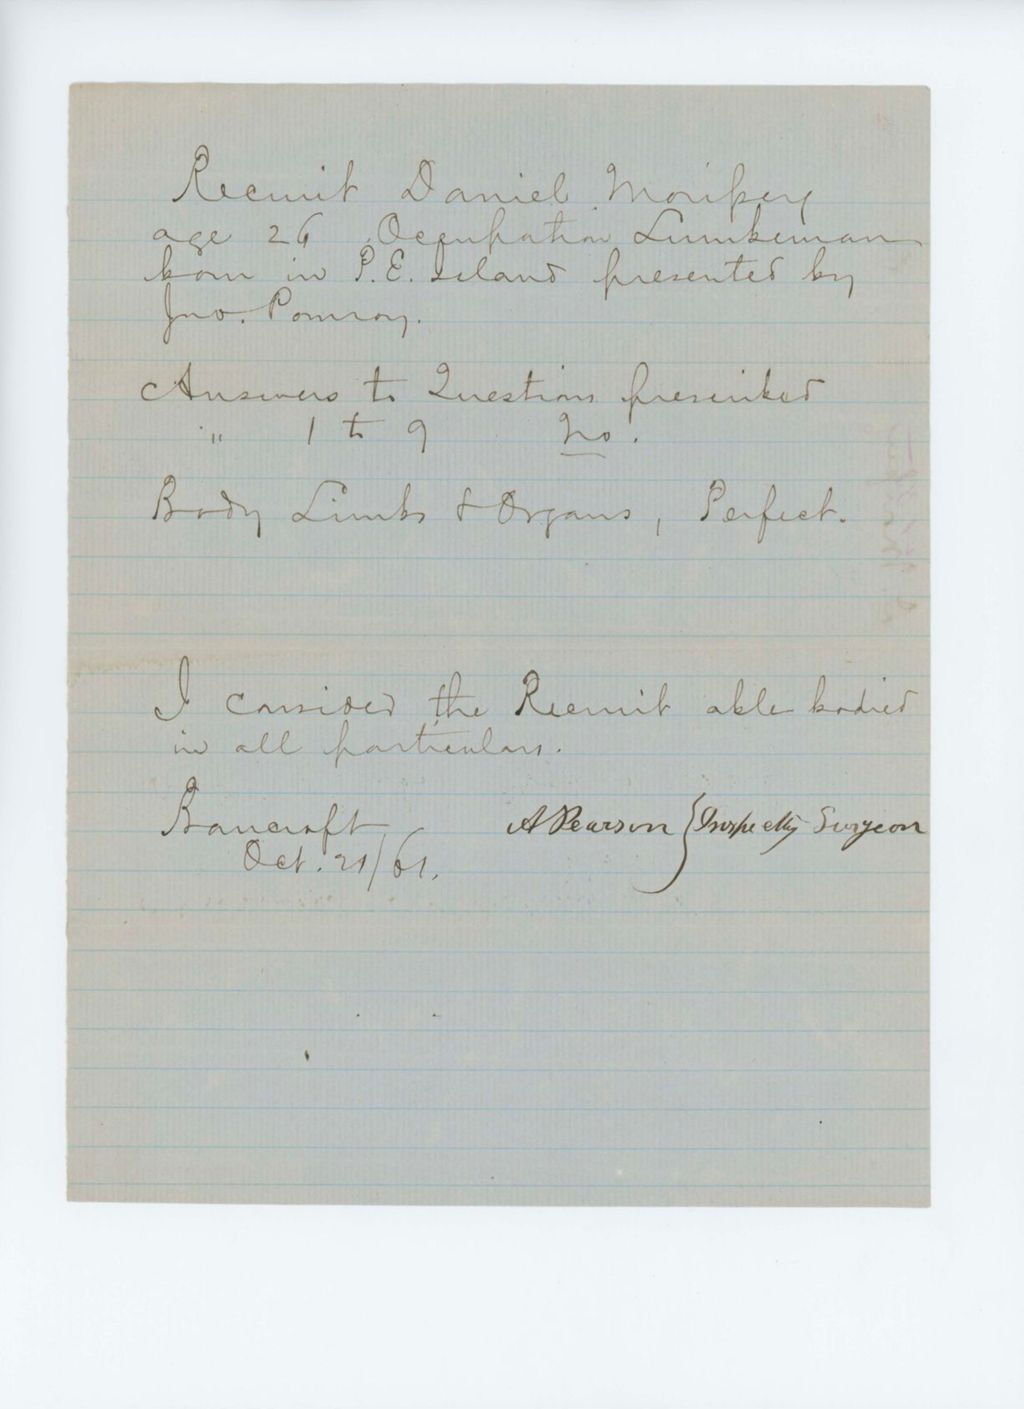 Recruit Daniel
age 26 Occupation Lumberman
born in P.E. Island presented by
Jno. Pomroy.
Answers to Questions prescribed
" 1 to 9 No.
Body Limbs & Organs, Perfect.
I consider the Recruit able bodied
in all particulars.
Bancroft A Pearson } Inspectg Surgeon
Oct. 21/61.